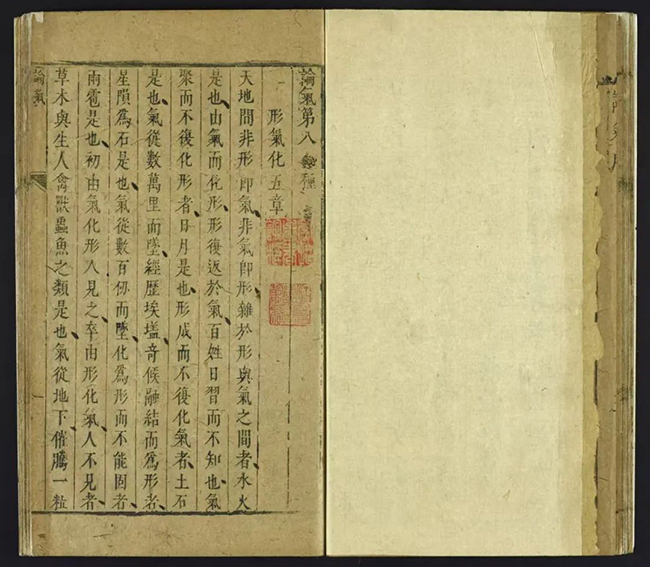 論氣第八
形氣化五章
天地間非形即氣非氣即形雜於形與氣之間者水火
是也由氣而化形形復返於氣百姓日習而不知也氣
聚而不復化形者日月是也形成而不復化氣者土石
是也氣從數萬里而墜經歷埃壒奇候融結而爲形者
星隕爲石是也氣從數百仞而墜化爲形而不能固者
雨雹是也初由氣化形人見之卒由形化氣人不見者
草木與生人禽獸蟲魚之類是也氣從地下催騰一粒
論氣